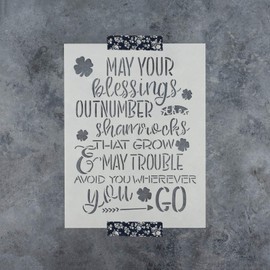 MAY YOUR
blessings
OUTNUMBER the
shamrocks
THAT GROW
& MAY TROUBLE
AVOID YOU WHEREVER
you GO